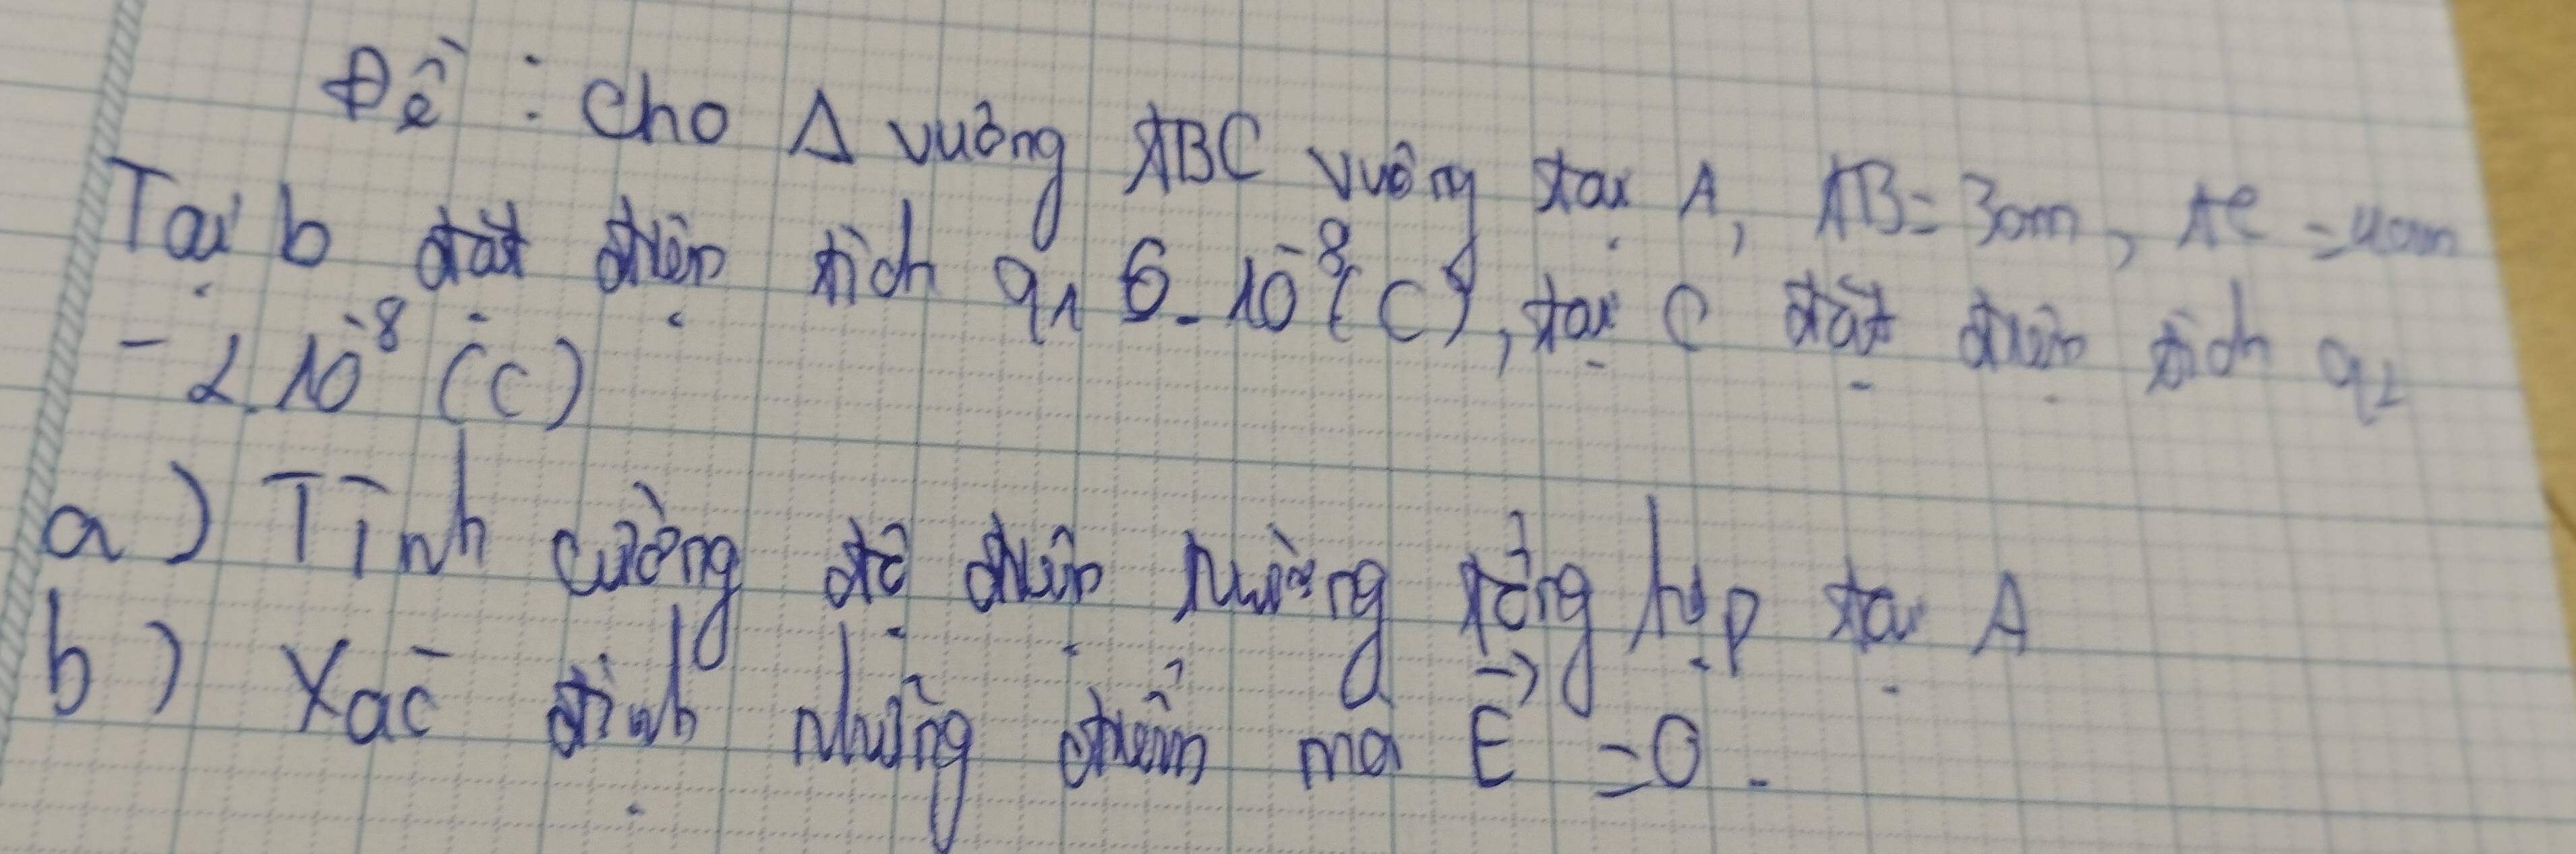 Đề : Cho Δ vuông ABC vuông tại A, AB = 3cm, AC = 4cm
Tại b đặt điện tích q1 6.10^-8 (C), tại C đặt điện tích q2
- 2.10^-8 (C)
a) Tính cường độ điện trường tổng hợp tại A
b) Xác định những điểm mà E⃗ = 0.